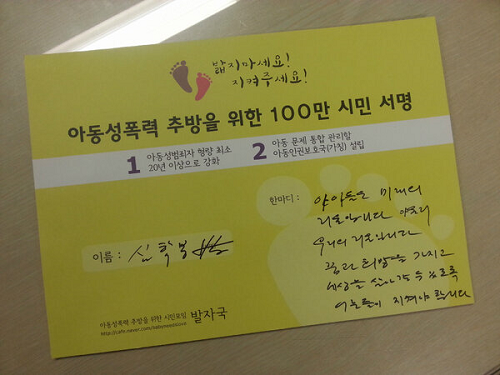 밟지마세요!
지켜주세요!
아동성폭력 추방을 위한 100만 시민 서명
1 아동성범죄자 형량 최소
20년 이상으로 강화
2 아동 문제 통합 관리할
아동인권보호국(가칭) 설립
한마디 :
미래의
우리의 거울입니다
꿈과 희망을 가지고
세상을 살아갈 수 있도록
어른들이 지켜야 합니다
이름 : 심학봉
아동성폭력 추방을 위한 시민모임 발자국